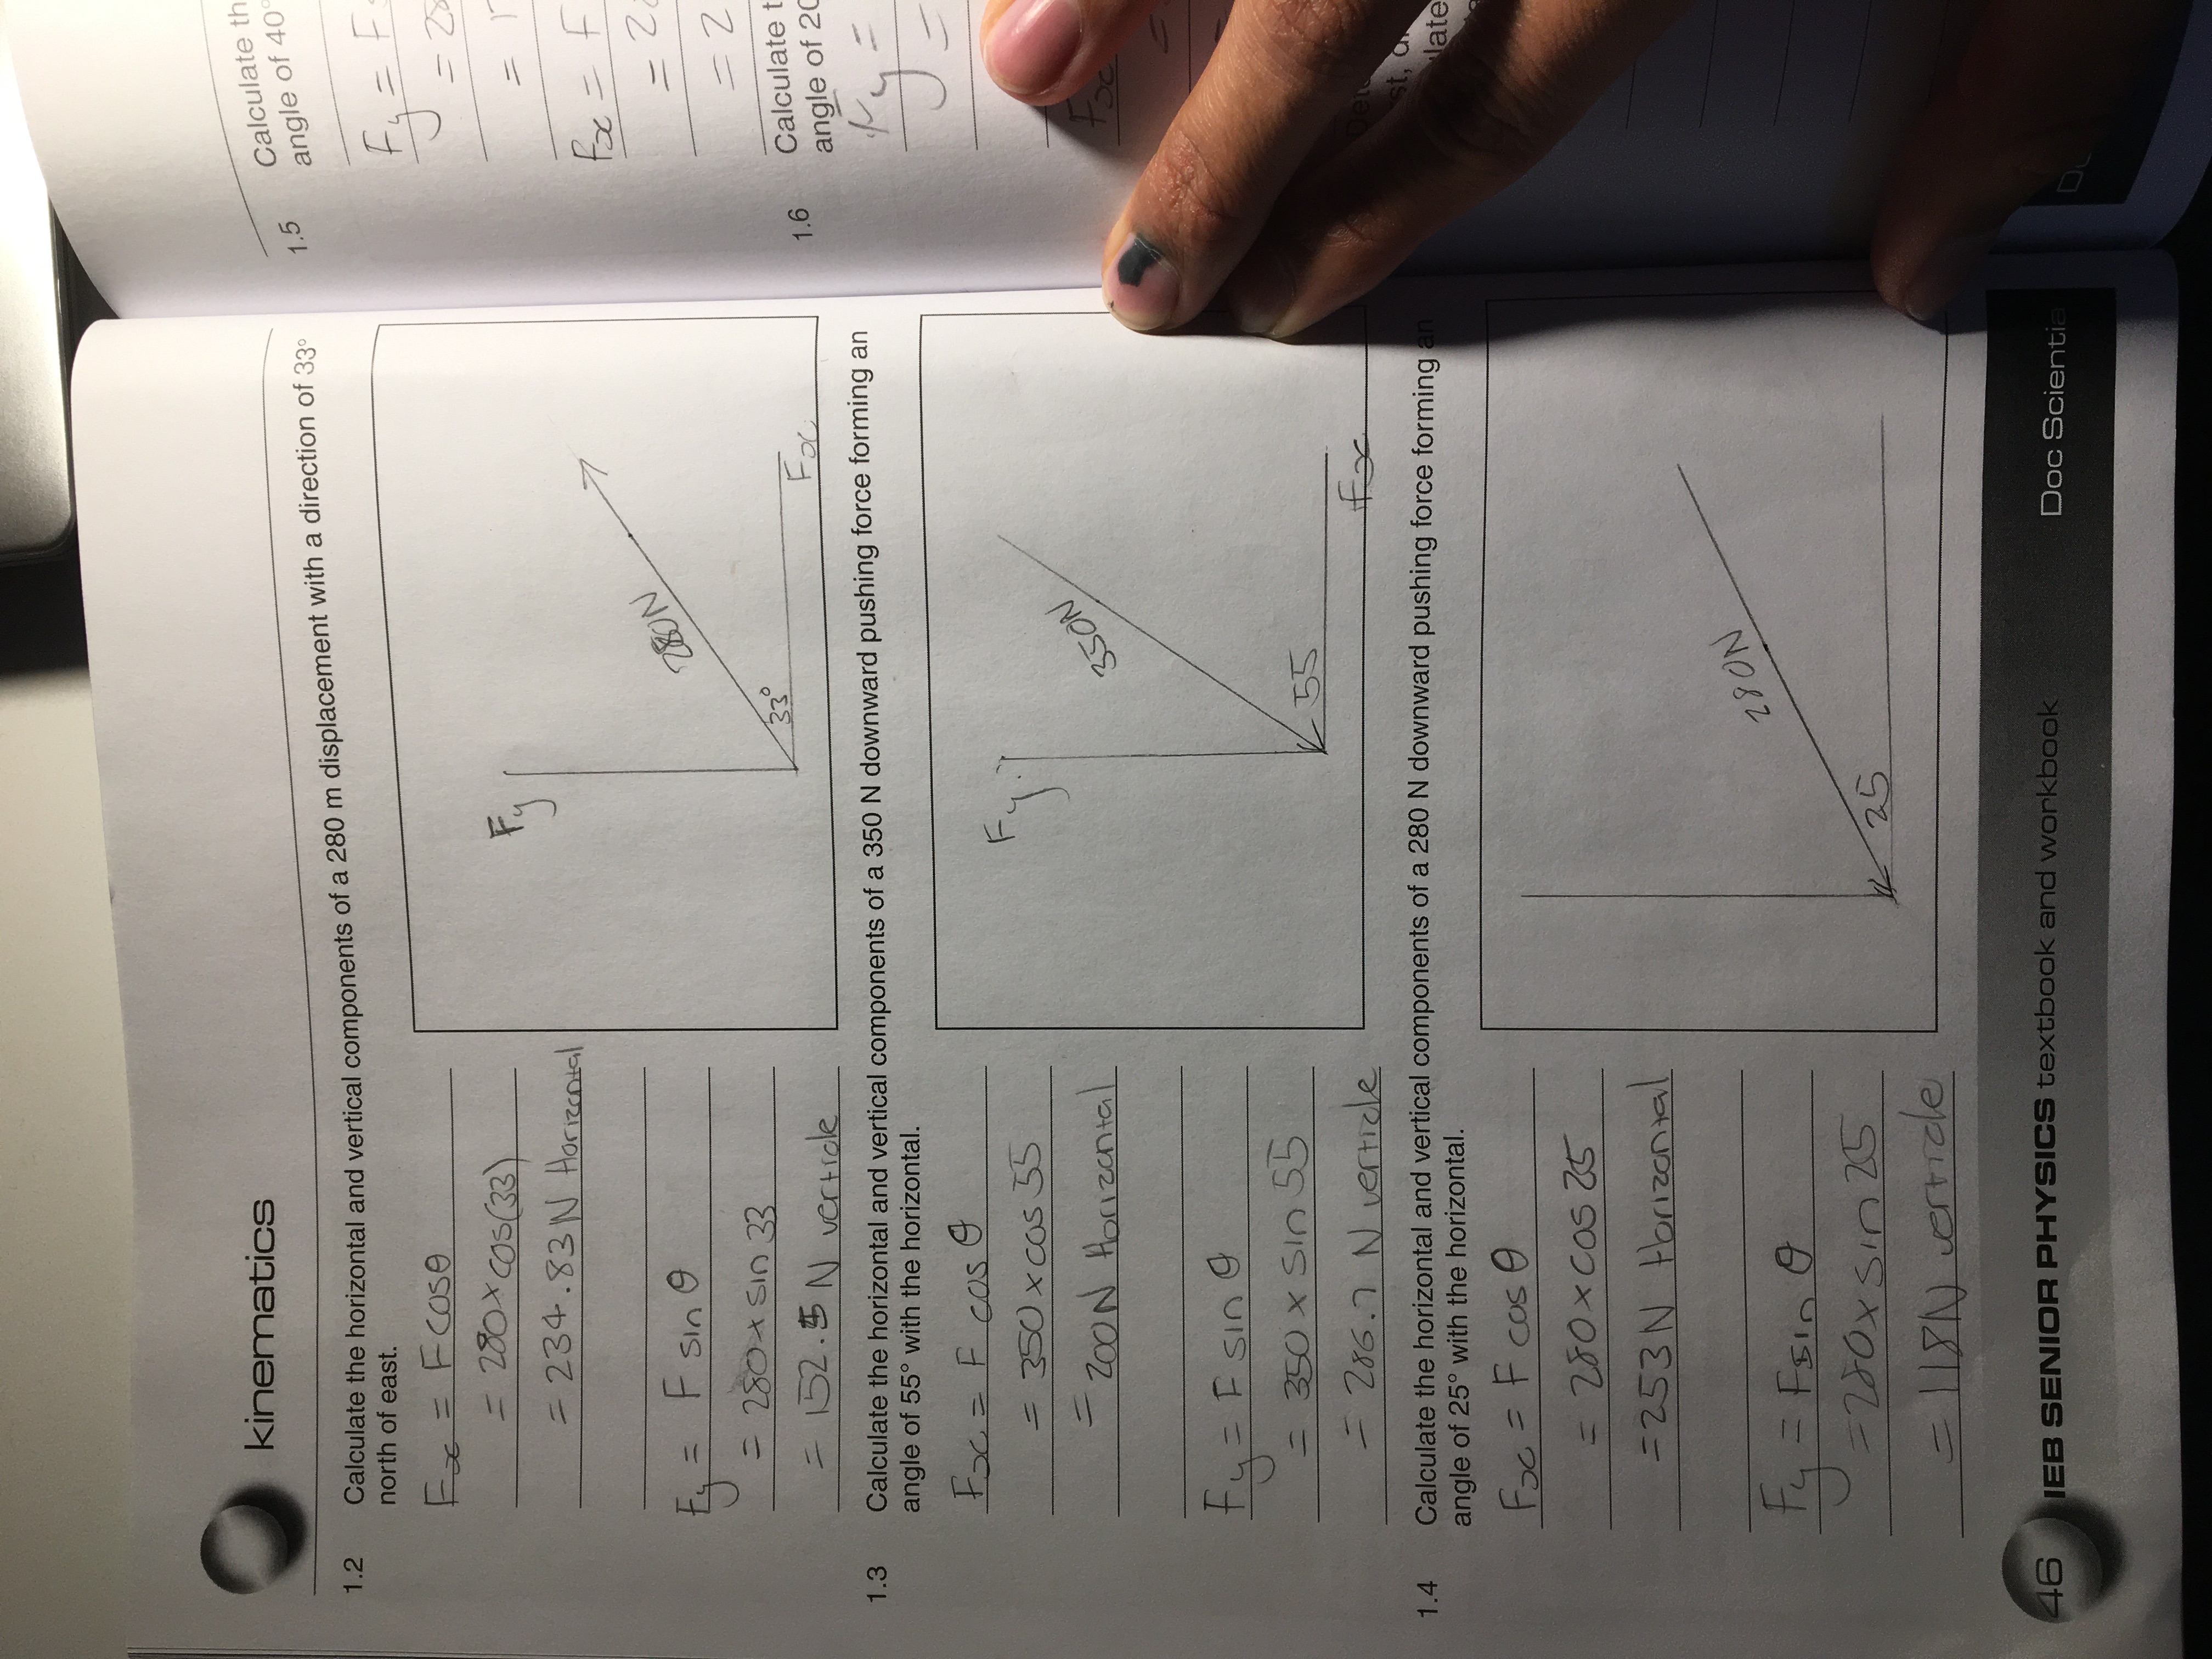 kinematics
1.2 Calculate the horizontal and vertical components of a 280 m displacement with a direction of 33°
north of east.
Fx = F cosθ
= 280 × cos(33)
= 234.83 N Horizontal
Fy = F sin θ
= 280 × sin 33
= 152.5 N verticle
Fy
280N
33°
Fx
1.3 Calculate the horizontal and vertical components of a 350 N downward pushing force forming an
angle of 55° with the horizontal.
Fx = F cos θ
= 350 × cos 55
= 200N Horizontal
Fy = F sin θ
= 350 × sin 55
= 286.7 N verticle
Fy
350N
55
Fx
1.4 Calculate the horizontal and vertical components of a 280 N downward pushing force forming an
angle of 25° with the horizontal.
Fx = F cos θ
= 280 × cos 25
= 253 N Horizontal
Fy = F sin θ
= 280 × sin 25
= 118N verticle
280N
25
46 IEB SENIOR PHYSICS textbook and workbook Doc Scientia
1.5 Calculate th
angle of 40°
Fy = F
= 28
=
Fx = F
= 2
= 2
1.6 Calculate t
angle of 20
Fy =
=
Fx
=
late